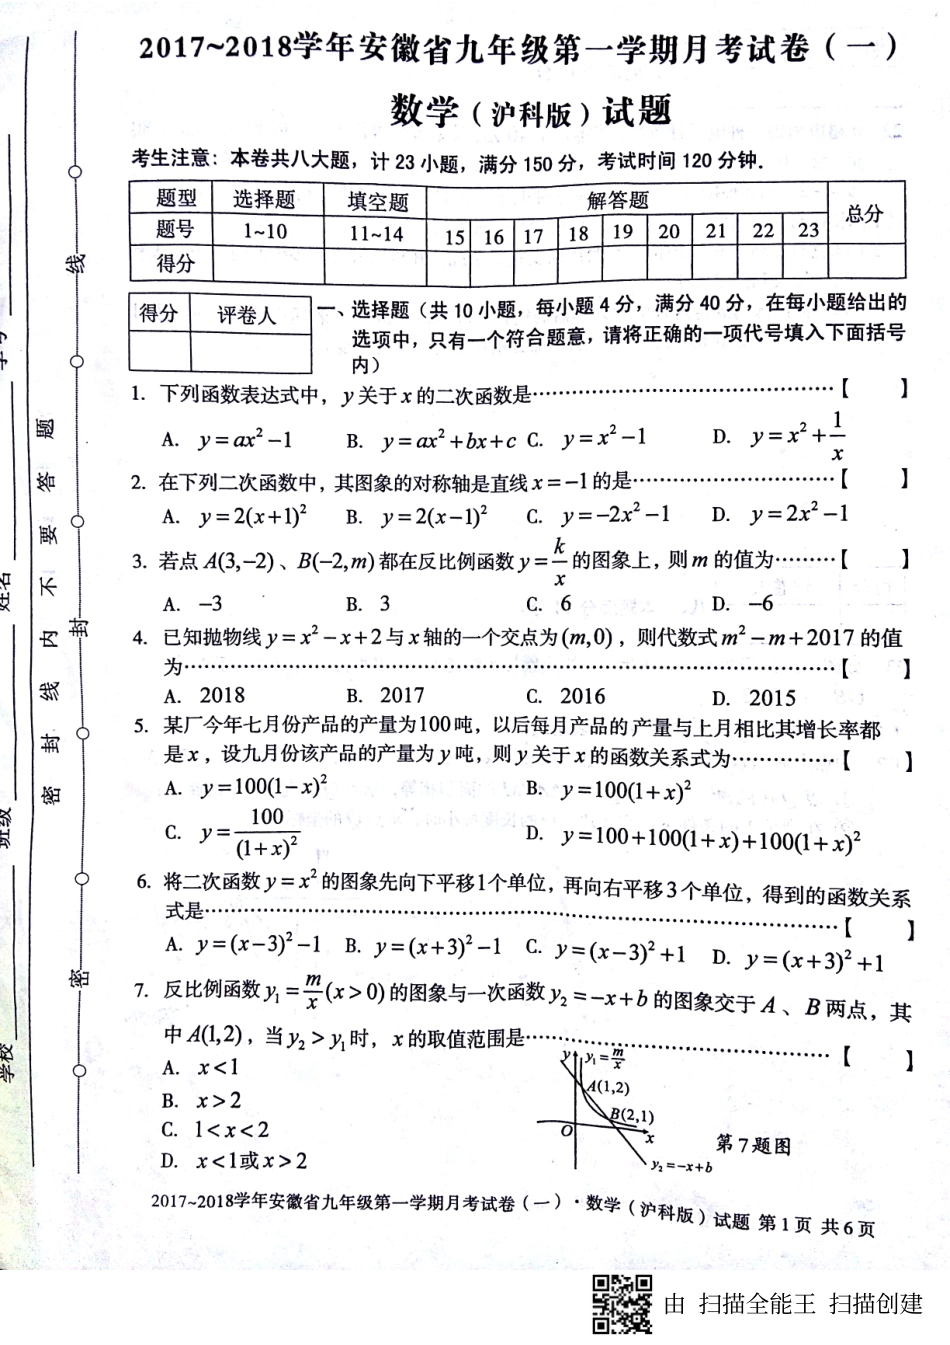 2017~2018学年安徽省九年级第一学期月考试卷(一)
数学(沪科版)试题
考生注意：本卷共八大题，计 23 小题，满分 150 分，考试时间 120 分钟．
题型 选择题 填空题 解答题 总分
题号 1~10 11~14 15 16 17 18 19 20 21 22 23
得分
得分 评卷人
一、选择题（共 10 小题，每小题 4 分，满分 40 分，在每小题给出的
选项中，只有一个符合题意，请将正确的一项代号填入下面括号
内）
1. 下列函数表达式中，y关于x的二次函数是……………………………【 】
A. y=ax²−1 B. y=ax²+bx+c C. y=x²−1 D. y=x²+1/x
2. 在下列二次函数中，其图象的对称轴是直线x=−1的是……………………【 】
A. y=2(x+1)² B. y=2(x−1)² C. y=−2x²−1 D. y=2x²−1
3. 若点A(3,−2)、B(−2,m)都在反比例函数y=k/x的图象上，则m的值为………【 】
A. −3 B. 3 C. 6 D. −6
4. 已知抛物线y=x²−x+2与x轴的一个交点为(m,0)，则代数式m²−m+2017的值
为……………………………………………………………………【 】
A. 2018 B. 2017 C. 2016 D. 2015
5. 某厂今年七月份产品的产量为100吨，以后每月产品的产量与上月相比其增长率都
是x，设九月份该产品的产量为y吨，则y关于x的函数关系式为……………【 】
A. y=100(1−x)² B. y=100(1+x)²
C. y=100/(1+x)² D. y=100+100(1+x)+100(1+x)²
6. 将二次函数y=x²的图象先向下平移1个单位，再向右平移3个单位，得到的函数关系
式是…………………………………………………………………【 】
A. y=(x−3)²−1 B. y=(x+3)²−1 C. y=(x−3)²+1 D. y=(x+3)²+1
7. 反比例函数y₁=m/x(x>0)的图象与一次函数y₂=−x+b的图象交于A、B两点，其
中A(1,2)，当y₂>y₁时，x的取值范围是……………………………【 】
A. x<1
B. x>2
C. 1<x<2
D. x<1或x>2
y y₁=m/x
A(1,2)
B(2,1)
O x
y₂=−x+b
第7题图
2017~2018学年安徽省九年级第一学期月考试卷(一)·数学(沪科版)试题 第1页 共6页
学校
班级
姓名
密 封 线 内 不 要 答 题
密 封 线
由 扫描全能王 扫描创建